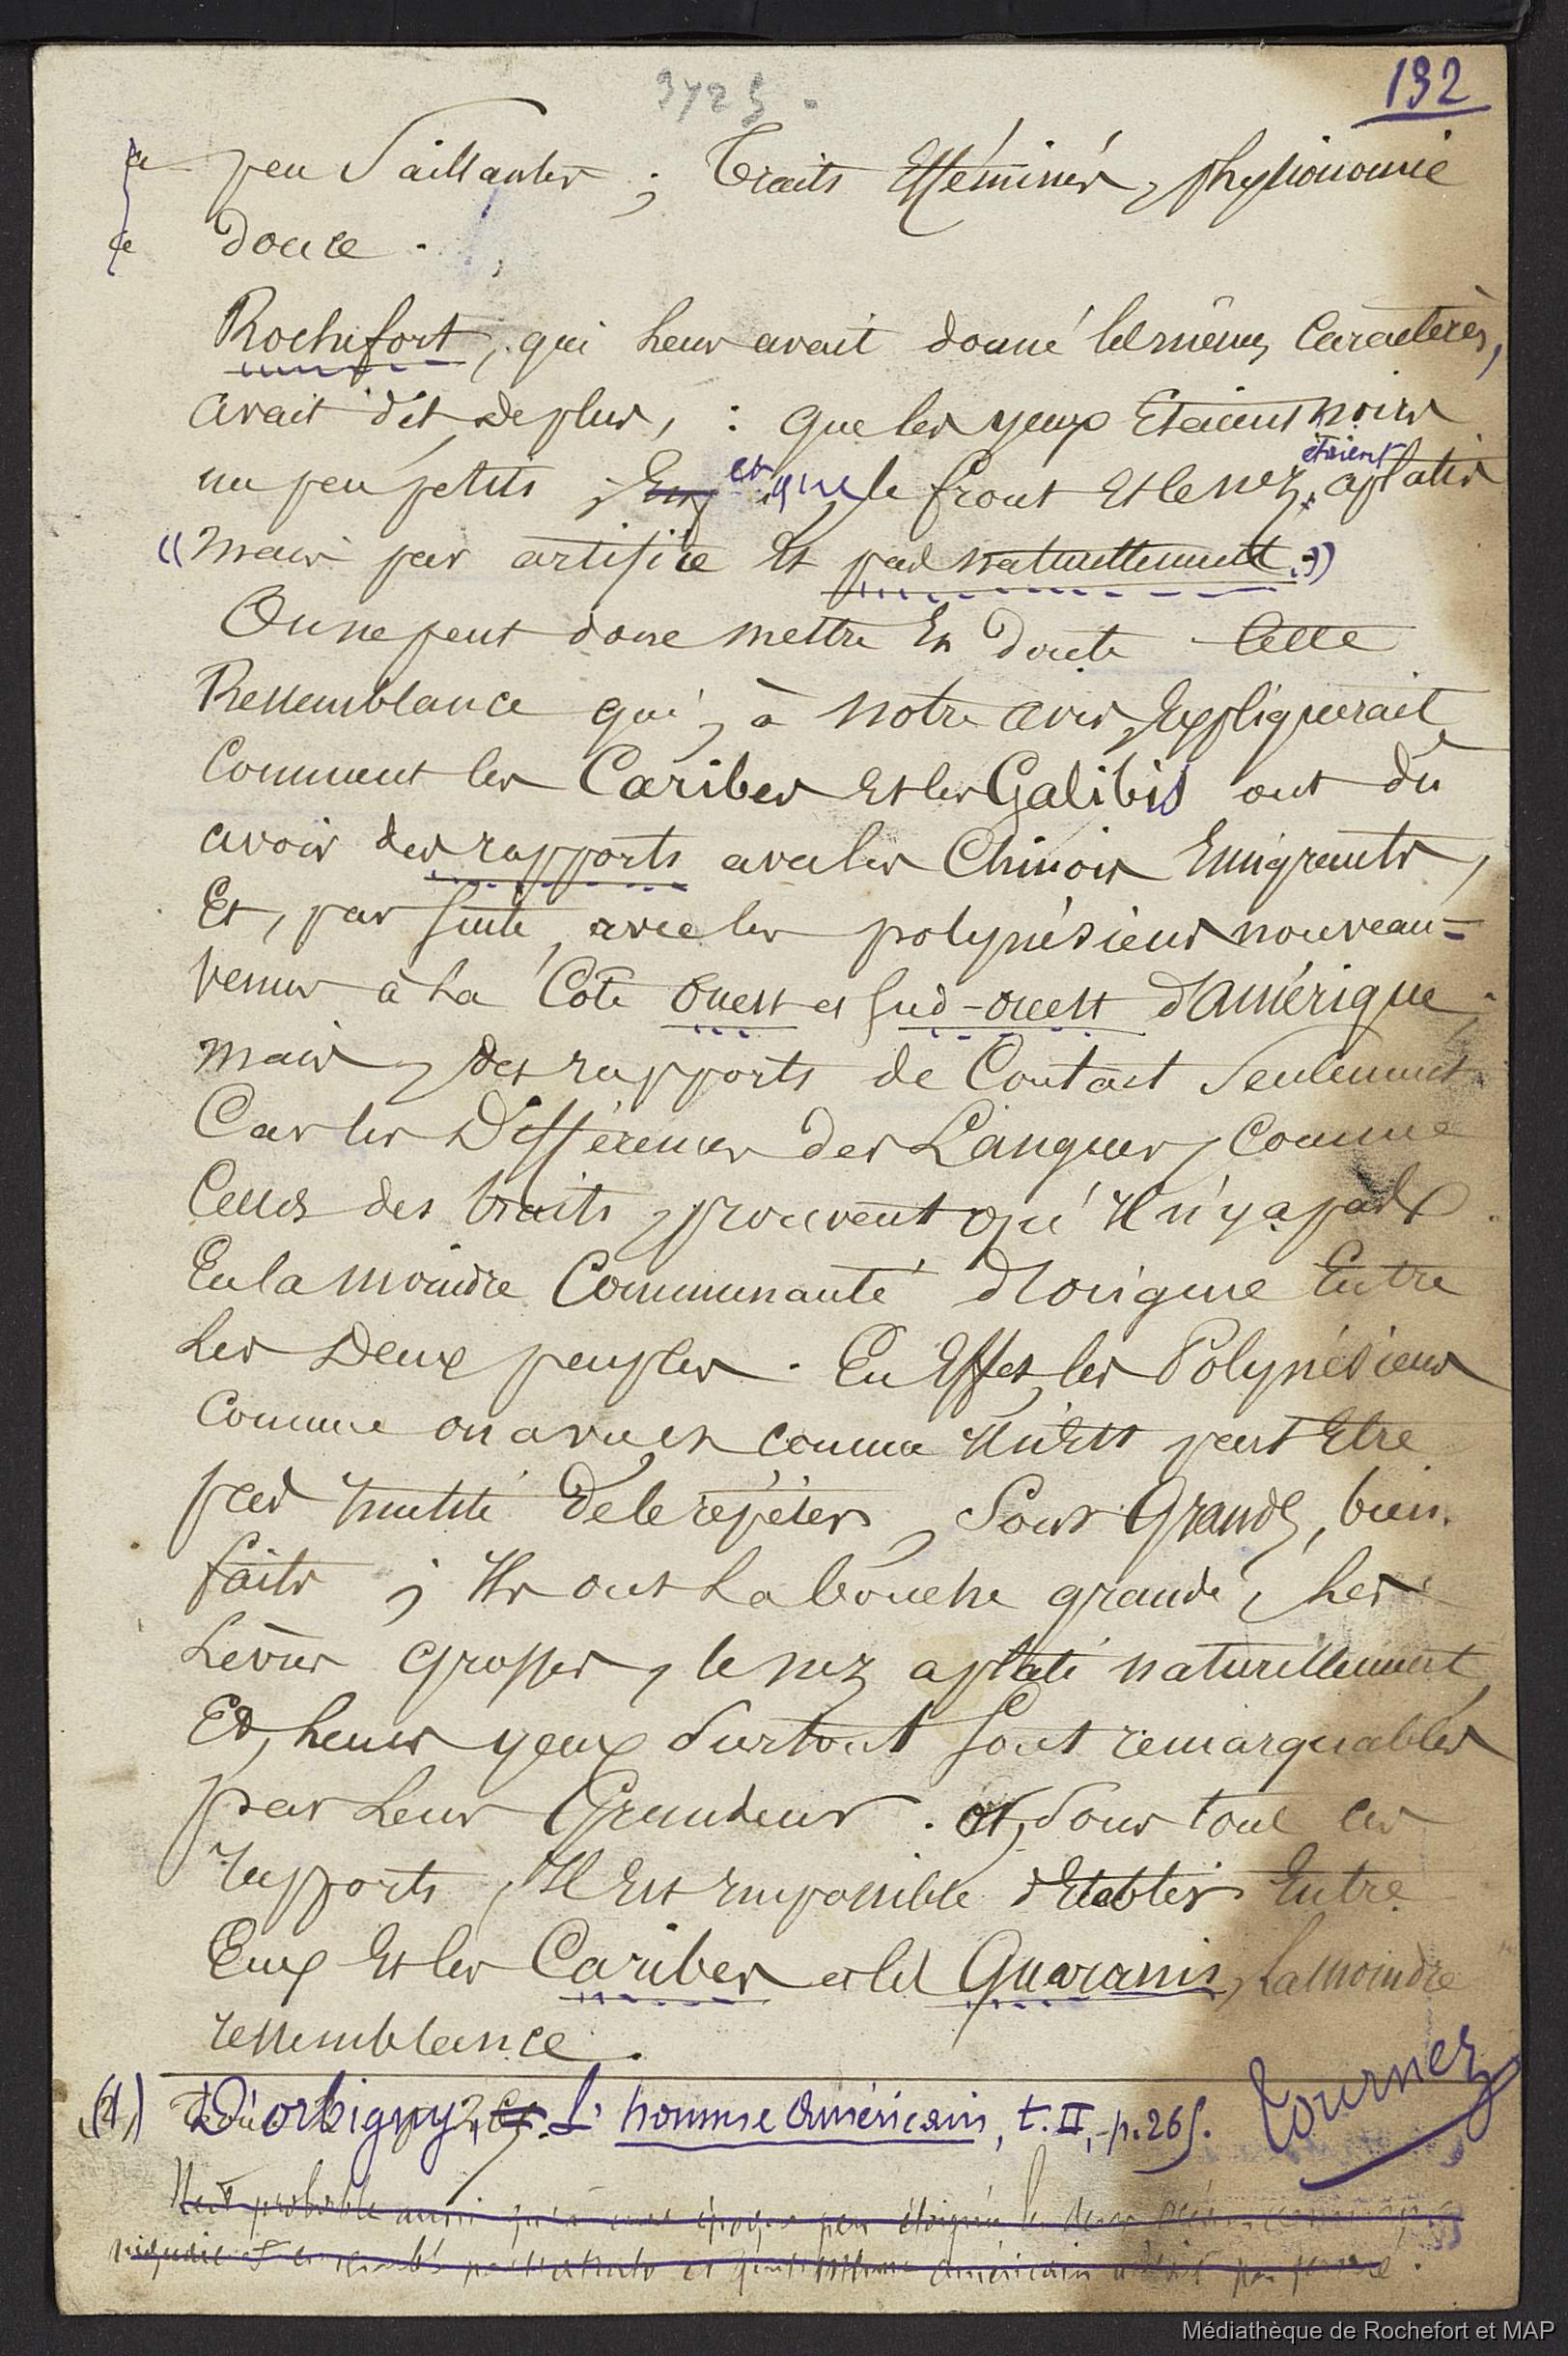 3425.
132
« peu Saillantes ; Traits Efféminés, physionomie
« douce.
Rochefort, qui leur avait donné les mêmes Caractères,
avait dit, de plus, : que les yeux Etaient noirs
un peu petits, et que le front Et le nez étaient aplatis
« mais par artifice Et pas naturellement. »
On ne peut donc mettre En doute Cette
Ressemblance qui, à notre avis, Expliquerait
Comment les Caribes Et les Galibis ont dû
avoir des rapports avec les Chinois Emigrants,
Et, par suite, avec les polynésiens nouveau-
venus à la Côte Ouest et Sud-ouest d'Amérique ;
mais, des rapports de Contact Seulement
Car les Différences des Langues, Comme
Celles des traits, prouvent qu'Il n'y a pas
Eu la moindre Communauté d'origine Entre
Les Deux peuples. En Effet, les Polynésiens
Comme on a vu, et comme Il n'Est peut Etre
pas Inutile de le répéter, Sont Grands, bien
faits ; Ils ont La bouche grande, Les
Lèvres grosses, le nez aplati naturellement,
Et, Leurs yeux Surtout Sont remarquables
par Leur Grandeur. Or, Sous tous ces
rapports, Il Est Impossible d'Etablir Entre
Eux Et les Caribes et les Guaranis, La moindre
ressemblance.
(1) D'orbigny, L'homme Américain, t. II, p. 265.
Tournez
Il est probable aussi qu'à une époque peu éloignée les deux
américain n'était pas
Médiathèque de Rochefort et MAP